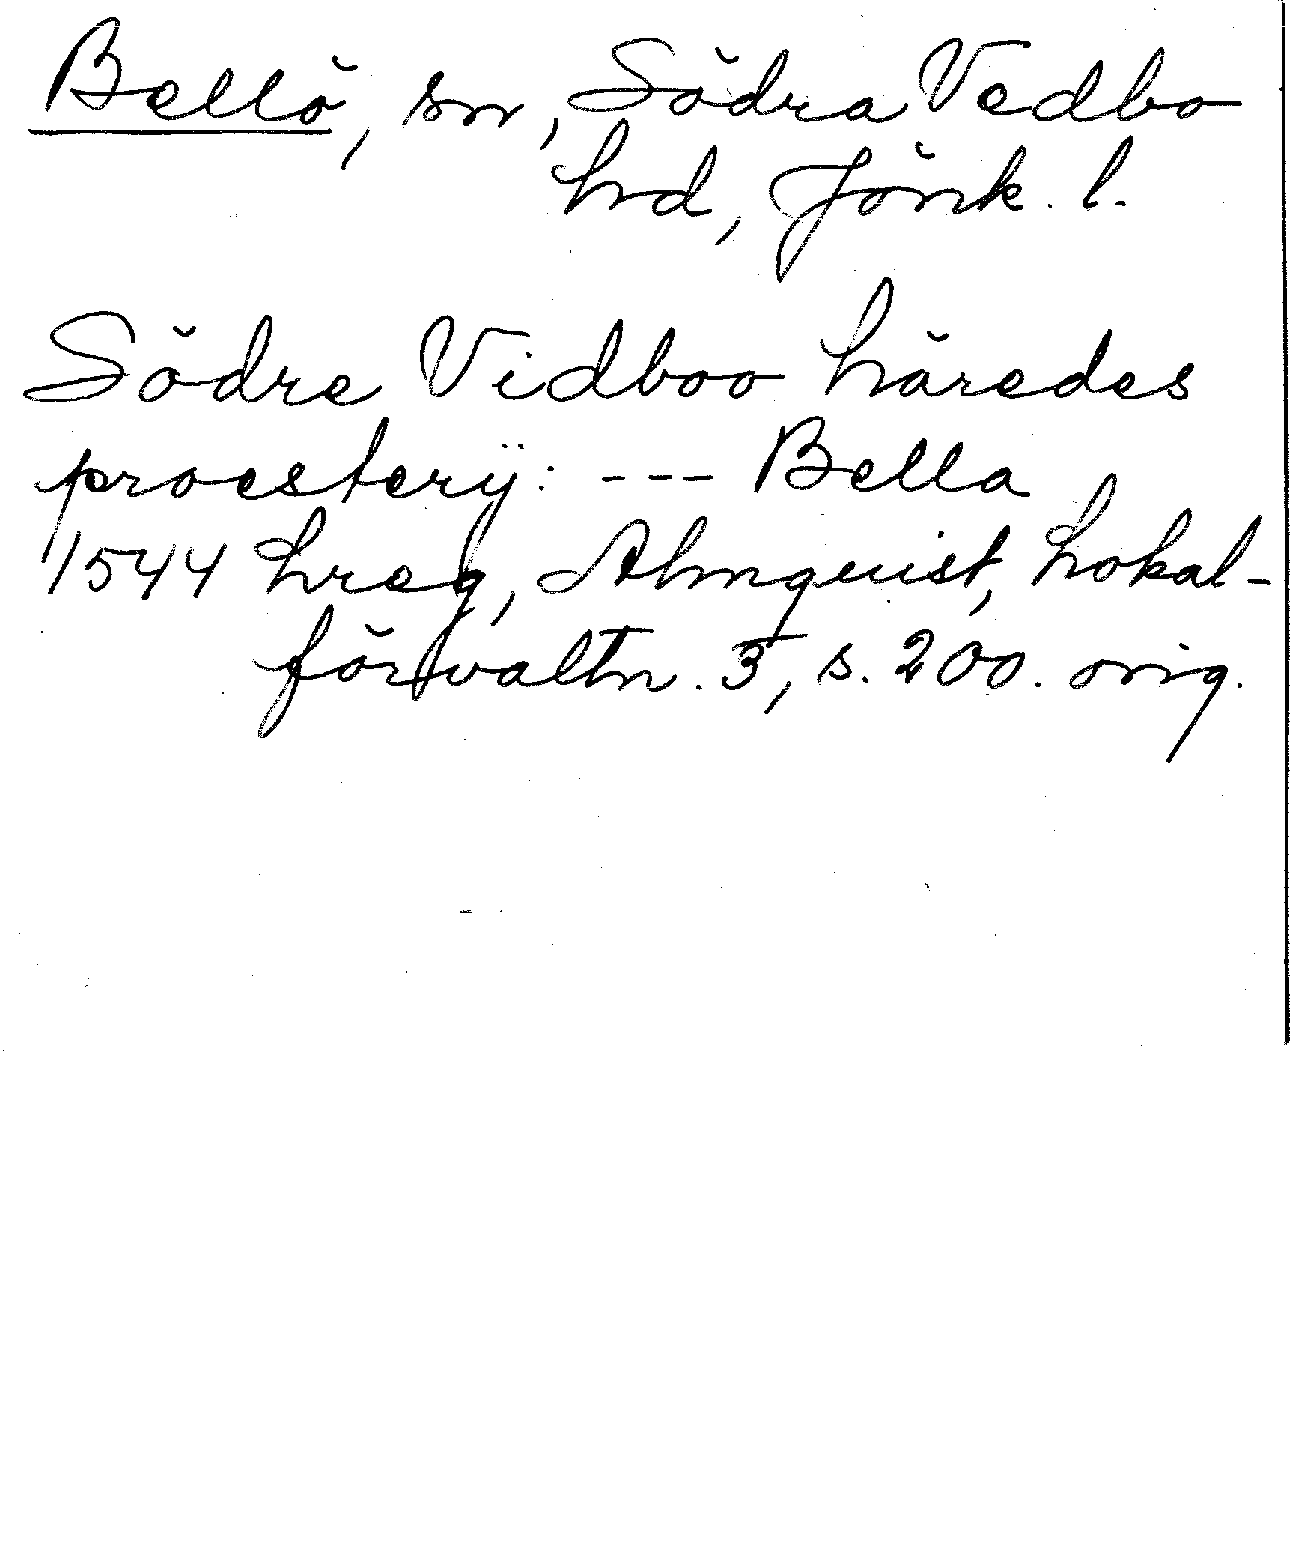 Bellö, sn, Södra Vedbo
hd, Jönk. l.
Södre Vidboo häredes
proesterÿ: --- Bella
1544 hreg, Almquist, Lokal-
förvaltn. 3, s. 200. orig.